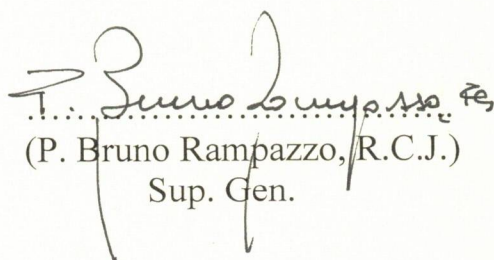 P. Bruno Rampazzo, rcj
(P. Bruno Rampazzo, R.C.J.)
Sup. Gen.